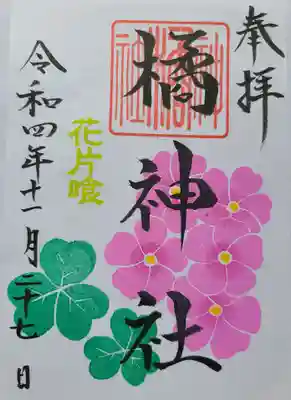 奉拝
橘神社
花片喰
令和四年十一月二十七日